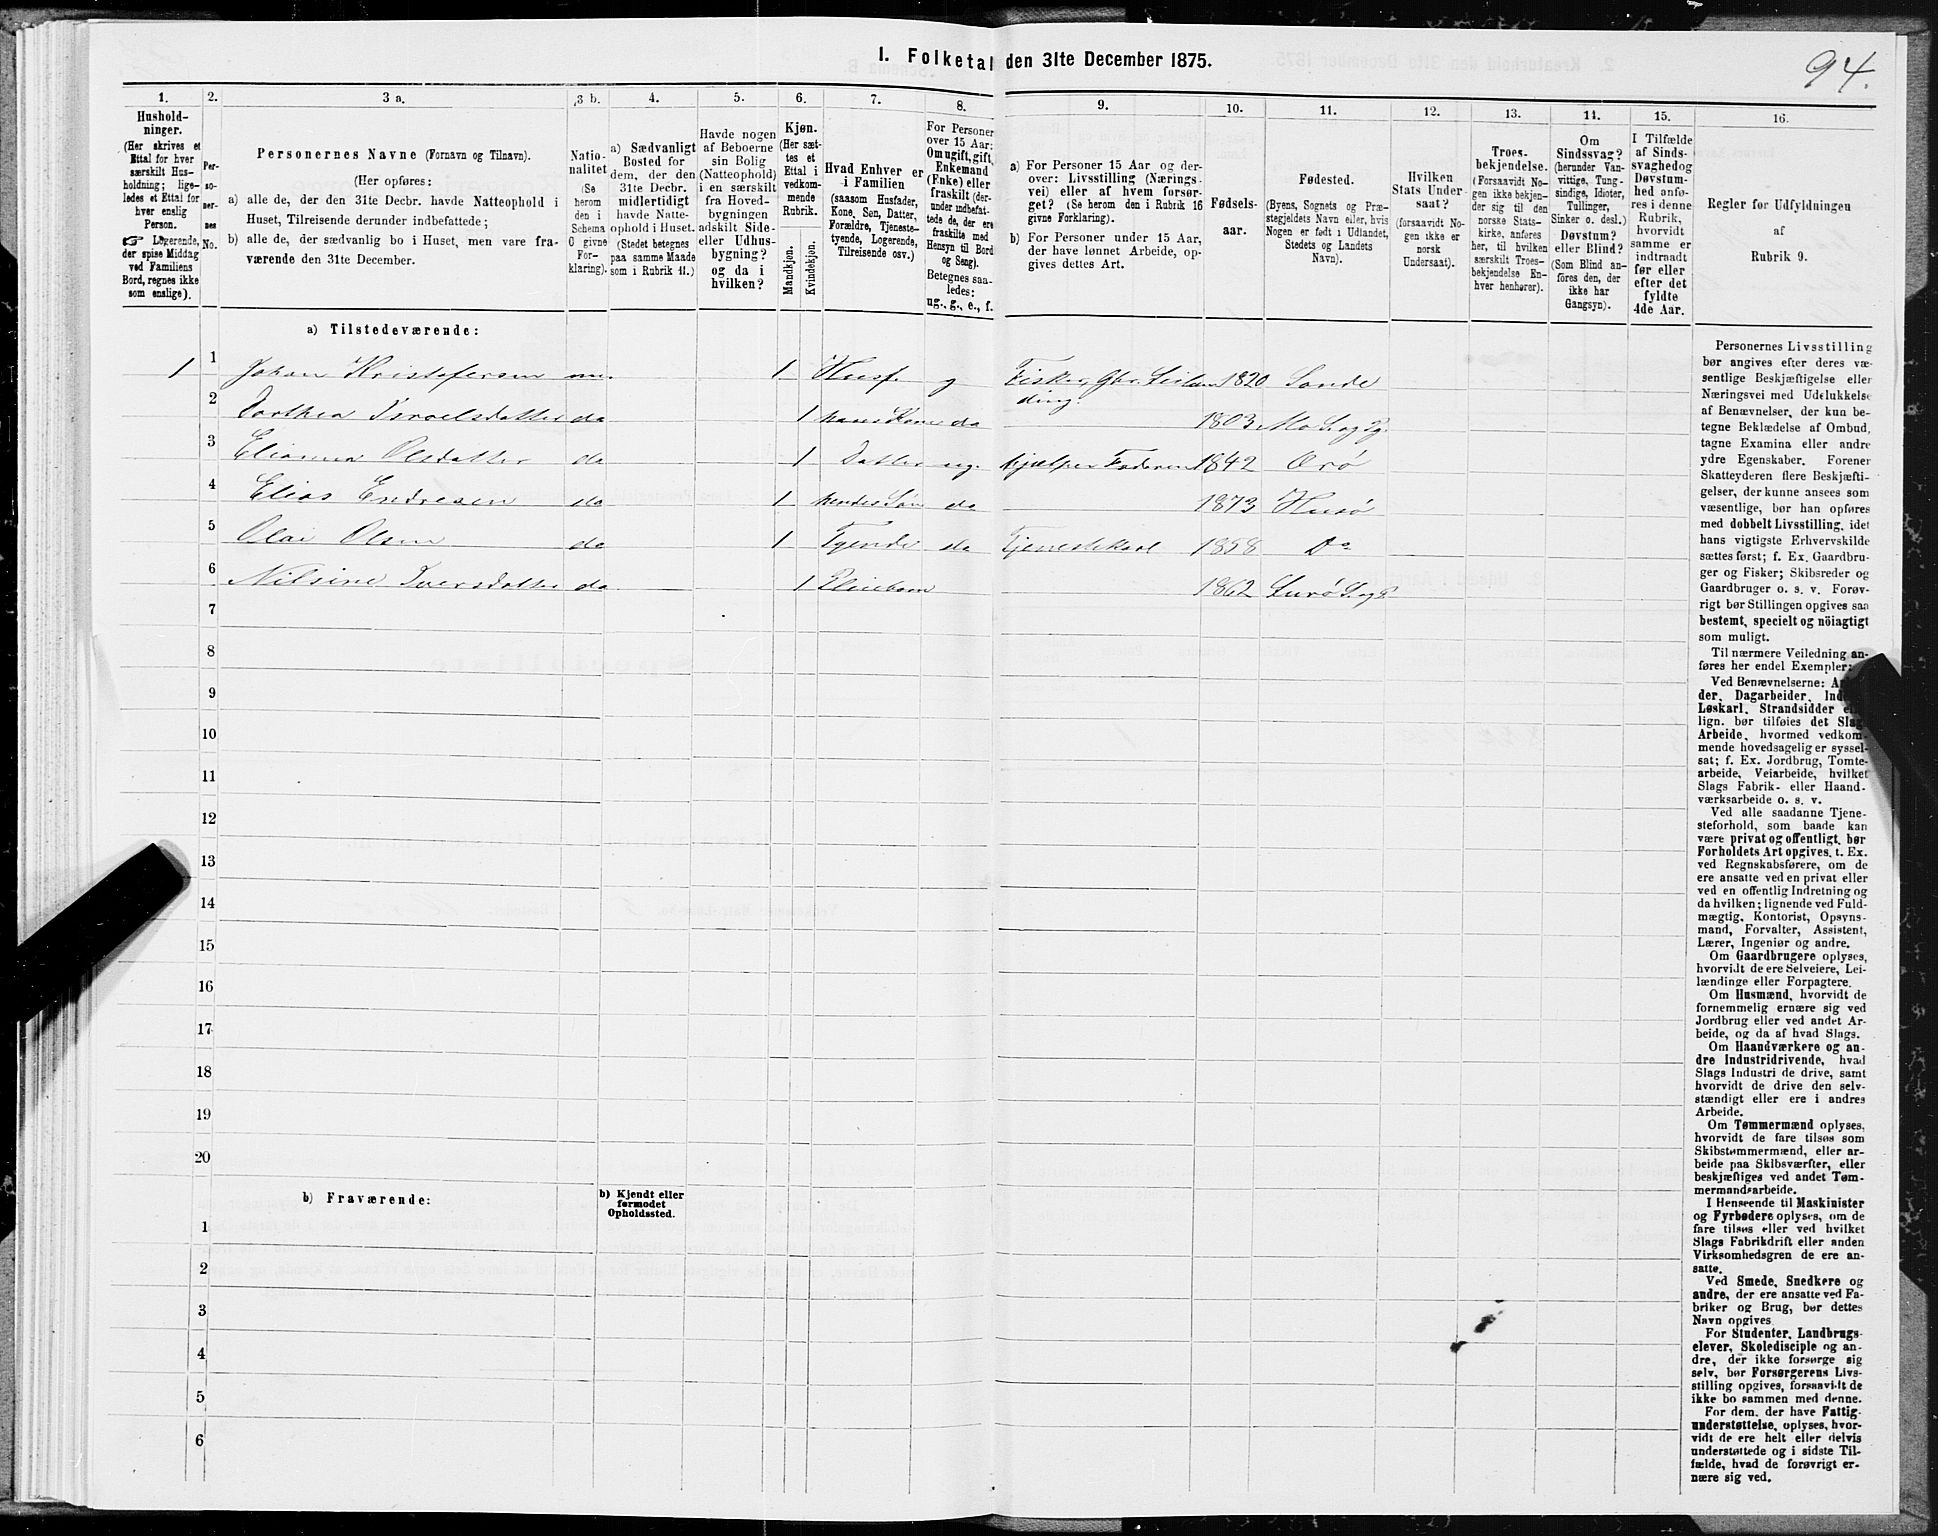 94.
I. Folketal den 31te December 1875.
1. 2. 3 a. 3 b. 4. 5. 6. 7. 8. 9. 10. 11. 12. 13. 14. 15. 16.
Hushold-
ninger.
(Her skrives et
Ettal for hver
særskilt Hus-
holdning; lige-
ledes et Ettal for
hver enslig
Person.
☞ Logerende,
der spise Middag
ved Familiens
Bord, regnes ikke
som enslige).
Per-
so-
ner-
nes
No.
Personernes Navne (Fornavn og Tilnavn).
(Her opføres:
a) alle de, der den 31te Decbr. havde Natteophold i
Huset, Tilreisende derunder indbefattede;
b) alle de, der sædvanlig bo i Huset, men vare fra-
værende den 31te December.
Natio-
nalitet
(Se
herom
den i
Schema
C givne
For-
klaring).
a) Sædvanligt
Bosted for
dem, der den
31te Decbr.
midlertidigt
havde Natte-
ophold i Huset.
(Stedet betegnes
paa samme Maade
som i Rubrik 11.)
Havde nogen
af Beboerne
sin Bolig
(Natteophold)
i en særskilt
fra Hoved-
bygningen
adskilt Side-
eller Udhus-
bygning?
og da i
hvilken?
Kjøn.
(Her sæt-
tes et
Ettal i
vedkom-
mende
Rubrik.
Mandkjøn.
Kvindekjøn.
Hvad Enhver er
i Familien
(saasom Husfader,
Kone, Søn, Datter,
Forældre, Tjeneste-
tyende, Logerende,
Tilreisende osv.)
For Personer
over 15 Aar:
Om ugift, gift,
Enkemand
(Enke) eller
fraskilt (der-
under indbefat-
tede de, der ere
fraskilte med
Hensyn til Bord
og Seng).
Betegnes saa-
ledes:
ug., g., e., f.
a) For Personer 15 Aar og der-
over: Livsstilling (Nærings-
vei) eller af hvem forsør-
get? (Se herom den i Rubrik 16
givne Forklaring).
b) For Personer under 15 Aar,
der have lønnet Arbeide, op-
gives dettes Art.
Fødsels-
aar.
Fødested.
(Byens, Sognets og Præ-
stegjeldets Navn eller, hvis
Nogen er født i Udlandet,
Stedets og Landets
Navn).
Hvilken
Stats Under-
saat?
(forsaavidt No-
gen ikke er
norsk
Undersaat).
Troes-
bekjendelse.
(Forsaavidt No-
gen ikke bekjen-
der sig til den
norske Stats-
kirke, anføres
her, til hvilken
særskilt Troes-
bekjendelse En-
hver henhører).
Om
Sindssvag?
(herunder Van-
vittige, Tung-
sindige, Idioter,
Tullinger,
Sinker o. desl.)
Døvstum?
eller Blind?
(Som Blind an-
føres den, der
ikke har
Gangsyn).
I Tilfælde
af Sinds-
svaghed og
Døvstum-
hed anfø-
res i denne
Rubrik,
hvorvidt
samme er
indtraadt
før eller
efter det
fyldte
4de Aar.
Regler for Udfyldningen
af
Rubrik 9.
a) Tilstedeværende:
1 1 Johan Kristofersen nn. 1 Husf. g Fisker, Gbr. Leilæn- 1820 Sande
ding.
2 Dorthea Israelsdatter do 1 hans Kone do 1803 Mo S. og Pg.
3 Elianna Olsdatter do 1 Datter ug. hjælper Faderen 1842 Orö
4 Elias Endresen do 1 hendes Søn do 1873 Husö
5 Olai Olsen do 1 Tyende do Tjenestekarl 1858 Do
6 Nilsine Iversdatter do 1 Pleiebarn 1862 Lurö S. og P.
7
8
9
10
11
12
13
14
15
16
17
18
19
20
b) Fraværende:
b) Kjendt eller
formodet
Opholdssted.
1
2
3
4
5
6
Personernes Livsstilling
bør angives efter deres væ-
sentlige Beskjæftigelse eller
Næringsvei med Udelukkelse
af Benævnelser, der kun be-
tegne Beklædelse af Ombud,
tagne Examina eller andre
ydre Egenskaber. Forener
Skatteyderen flere Beskjæfti-
gelser, der kunne ansees som
væsentlige, bør han opføres
med dobbelt Livsstilling, idet
hans vigtigste Erhvervskilde
sættes først; f. Ex. Gaardbru-
ger og Fisker; Skibsreder og
Gaardbruger o. s. v. Forøv-
rigt bør Stillingen opgives saa
bestemt, specielt og nöiagtigt
som muligt.
Til nærmere Veiledning an-
føres her endel Exempler:
Ved Benævnelserne:
der, Dagarbeider,
Løskarl, Strandsidder
lign. bør tilføies det Slags
Arbeide, hvormed vedkom-
mende hovedsagelig er syssel-
sat; f. Ex. Jordbrug, Tomte-
arbeide, Veiarbeide, hvilket
Slags Fabrik- eller Haand-
værksarbeide o. s. v.
Ved alle saadanne Tjene-
steforhold, som baade kan
være privat og offentligt, bør
Forholdets Art opgives, t. Ex.
ved Regnskabsførere, om de
ere ansatte ved en privat eller
ved en offentlig Indretning og
da hvilken; lignende ved Fuld-
mægtig, Kontorist, Opsyns-
mand, Forvalter, Assistent,
Lærer, Ingeniør og andre.
Om Gaardbrugere oplyses,
hvorvidt de ere Selveiere, Lei-
lændinge eller Forpagtere.
Om Husmænd, hvorvidt de
fornemmelig ernære sig ved
Jordbrug eller ved andet Ar-
beide, og da af hvad Slags.
Om Haandværkere og an-
dre Industridrivende, hvad
Slags Industri de drive, samt
hvorvidt de drive den selv-
stændigt eller ere i andres
Arbeide.
Om Tømmermænd oplyses,
hvorvidt de fare tilsøs som
Skibstømmermænd, eller ar-
beide paa Skibsværfter, eller
beskjæftiges ved andet Tøm-
mermandsarbeide.
I Henseende til Maskinister
og Fyrbødere oplyses, om de
fare tilsøs eller ved hvilket
Slags Fabrikdrift eller anden
Virksomhedsgren de ere an-
satte.
Ved Smede, Snedkere og
andre, der ere ansatte ved Fa-
briker og Brug, bør dettes
Navn opgives.
For Studenter, Landbrugs-
elever, Skoledisciple og an-
dre, der ikke forsørge sig
selv, bør Forsørgerens Livs-
stilling opgives, forsaavidt de
ikke bo sammen med denne.
For dem, der have Fattig-
understøttelse, oplyses, hvor-
vidt de ere helt eller delvis
understøttede og i sidste Til-
fælde, hvad de forøvrigt er-
nære sig ved.